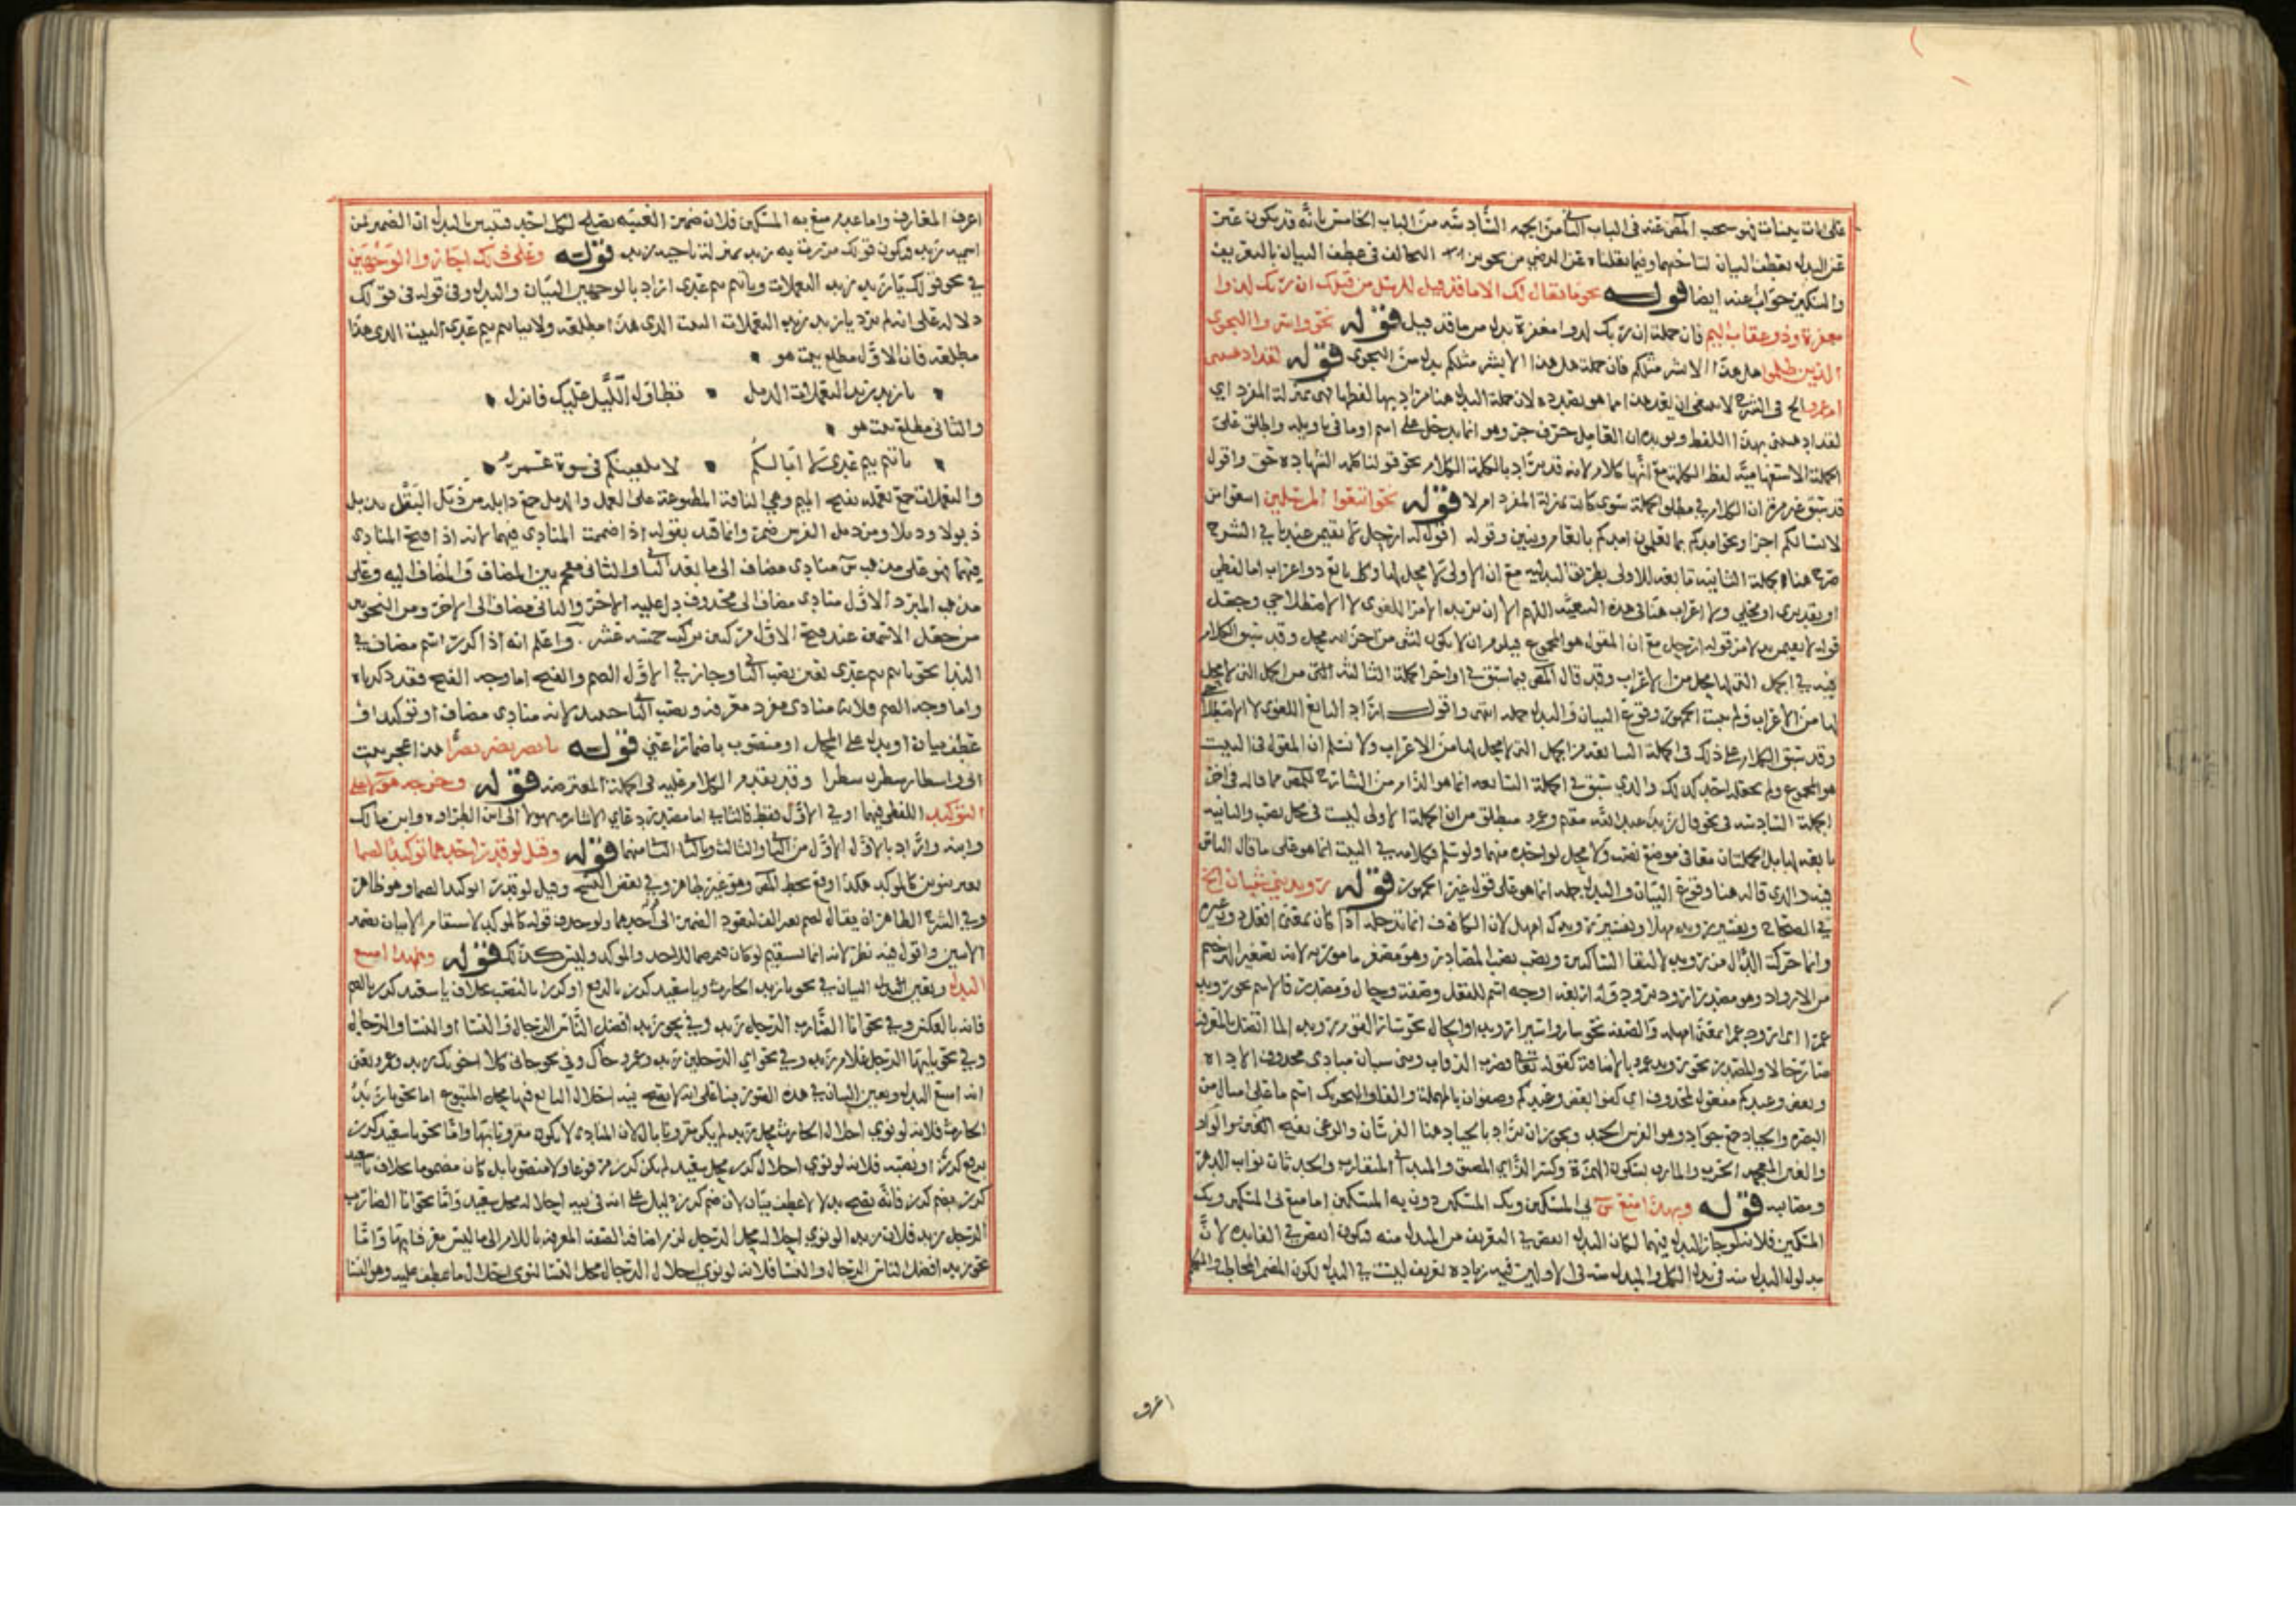 على ايات بينات فهو سحب المص عنه فى الباب الثامن الجهه السادسه من الباب الخامس بانه قد يكون عبر
عن البدل بعطف البيان لتاخيهما وفيما نقلناه عن الرضي من تجويز التخالف فى عطف البيان بالتعريف
والتنكير جواب عنه ايضا قوله نحو ما يقال لك الا ما قد قيل للرسل من قبلك ان ربك لذوا
مغفرة وذو عقاب اليم فان جملة ان ربك لذوا مغفرة بدل من ما قد قيل قوله نحو واسروا النجوى
الذين ظلموا هل هذا الا بشر مثلكم فان جملة هل هذا الا بشر مثلكم بدل من النجوى قوله لقد اذهلتني
ام عمرو الخ فى الشرح لا يخفى ان هذا انما هو بصدده لان جملة البدل هنا مراد بها لفظها فهى بمنزلة المفرد اي
لقد اذهلتني بهذا اللفظ ويويده ان العامل حرف جر وهو انما يدخل على اسم او ما فى تاويله واطلق على
الجملة الاستفهامية لفظ الكلمة مع انها كلام لانه قد يراد بالكلمة الكلام نحو قولنا كلمة الشهادة حق واقول
قد سبق غير مرة ان الكلام فى مطلق الجملة سوى كانت بمنزلة المفرد ام لا قوله نحو اتبعوا المرسلين اتبعوا من
لا يسألكم اجرا ونحو امدكم بما تعلمون امدكم بانعام وبنين وقوله اقول له ارحل لا تقيمن عندنا فى الشرح
صرح هنا بجملة الثانية تابعة للاولى بطريق البدلية مع ان الاولى لا محل لها وكل تابع ذو اعراب اما لفظي
او تقديري او محلي ولا اعراب هنا فى هذه التبعية اللهم الا ان يريد الامر اللغوي لا الاصطلاحي وجعل
قوله لا تقيمن بدلا من قوله ارحل مع ان المقول هو المجموع فيلزم ان لا يكون لشى من اجزائه محل وقد سبق الكلام
فيه فى الجمل التى لها محل من الاعراب وقد قال المص فيما سبق فى اواخر الجملة الثالثة التى من الجمل التى لا محل
لها من الاعراب ولم يثبت الجمهور وقوع البيان والبدل جملة انتهى واقول اراد التابع اللغوي لا الاصطلاحي
وقد سبق الكلام على ذلك فى الجملة السابعة من الجمل التى لا محل لها من الاعراب ولا نسلم ان المقول فى البيت
هو المجموع ولم يجعله احد كذلك والذي سبق فى الجملة السابعة انما هو الزام من الشارح للمص مما قاله فى اخر
الجملة السادسه فى نحو قال زيد عبد الله مقم وعمرو مطلق من ان الجملة الاولى ليست فى محل نصب والثانية
تابعة لها بل الجملتان معا فى موضع نصب ولا محل لواحدة منهما ولو سلم فكلامه فى البيت انما هو على ما قال الناس
فيه والذي قاله هنا وقوع البيان والبدل جملة انما هو على قول غير الجمهور قوله رويد بني شيبان الخ
فى الصحاح وتفسير رويد مهلا وتفسير رويدك امهل لان الكاف انما تدخله اذا كان بمعنى افعل دون غيره
وانما حركت الدال من رويد لالتقا الساكنين ونصب نصب المصادر وهو مصغر مامور به لانه تصغير الترخيم
من الارواد وهو مصدر ارود يرود وله اربعة اوجه اسم للفعل وصفة وحال ومصدر فالاسم نحو رويد
عمرا اى ارود عمرا بمعنى امهله والصفة نحو ساروا سيرا رويدا والحال نحو سار القوم رويدا لما اتصل بالمعرفة
صار حالا والمصدر نحو رويد عمرو بالاضافة كقوله تعالى فضرب الرقاب وبنى شيبان منادى محذوف الاداه
وبعض وعيدكم مفعول لمحذوف اي كفوا بعض وعيدكم وصفوان بالمهملة والفا والتحريك اسم ما على اميال من
البصره والجياد جمع جواد وهو الفرس الجيد ويجوز ان يراد بالجياد هنا الفرسان والوغى بفتح الغين والواو
والغين المعجمه الحرب والمازق بسكون الهمزة وكسر الزاي المضيق والمتدانى المتقارب والحدثان نواب الدهر
ومصايبه قوله وبهذا امتنع س بي المسكين وبك المسكين دون به المسكين اما منع بي المسكين وبك
المسكين فلانه لو جاز البدل فيهما لكان البدل انقص فى التعريف من المبدل منه فيكون انقص فى الفايده لان
مدلول البدل منه فى بدل الكل والمبدل منه فى الاولين فيه زيادة تعريف ليست فى البدل لكون المضمر المخاطب والمتكلم
اعرف
اعرف المعارف واما عدم منع به المسكين فلان ضمير الغيبه يصلح لكل احد فتبين بالبدل ان الضمير لمن
اسمه زيد فيكون قولك مررت به زيد بمنزلة ناحيه زيد قوله وعلى ذلك اجازوا الوجهين
فى نحو قولك يا زيد زيد اليعملات ويا تيم تيم عدى اراد بالوجهين البيان والبدل وفى قوله فى قولك
دلالة على انه لم يرد يا زيد زيد اليعملات البيت الذى هذا مطلعه ولا يا تيم تيم عدى البيت الذى هذا
مطلعه فان الاول مطلع بيت هو
يا زيد زيد اليعملات الذبل تطاول الليل عليك فانزل
والثانى مطلع بيت هو
يا تيم تيم عدي لا ابا لكم لا يلقينكم فى سوة عمر
واليعملات جمع يعملة بفتح الميم وهي الناقة المطبوعة على العمل والذبل جمع ذابل من ذبل البقل يذبل
ذبولا وذبلا ومن ذبل الفرس ضمر وانما قيد بقوله اذا ضممت المنادى فيهما لانه اذا فتح المنادى
فيهما فهو على مذهب س منادى مضاف الى ما بعد الثانى والثانى مقحم بين المضاف والمضاف اليه وعلى
مذهب المبرد الاول منادى مضاف الى محذوف دل عليه الاخر والثانى مضاف الى الاخر ومن النحويين
من جعل الاسمين عند فتح الاول مركبين تركيب خمسه عشر واعلم انه اذا كرر اسم مضاف فى
الندا نحو يا تيم تيم عدى تعين نصب الثانى وجاز فى الاول الضم والفتح اما وجه الفتح فقد ذكرناه
واما وجه الضم فلانه منادى مفرد معرفة ونصب الثانى حينئذ لانه منادى مضاف او توكيد او
عطف بيان او بدل على المحل او منصوب باضمار اعني قوله يا نصر نصر نصرا هذا عجز بيت
انى واسطار سطرن سطرا وقد تقدم الكلام عليه فى الجملة المعترضه قوله وخرجه هولا على
التوكيد اللفظى فيهما او فى الاول فقط فالثانى اما مصدر دعاي الاشاره بهولا الى ابن الطراوه وابن مالك
وابنه واراد بالاول الاول من الثانى والثالث وبالثانى الثانى منهما قوله وقيل لو قدر احدهما توكيدا لضما
بغير تنوين كالموكد هكذا وقع بخط المص وهو غير ظاهر وفى بعض النسخ وقيل لو قدر توكيدا لضما وهو ظاهر
وفى الشرح الظاهر ان يقال لضم بغير الف ليعود الضمير الى احدهما ولو حذف قوله كالموكد لاستقام الاتيان بضمير
الاثنين واقول فيه نظر لانه انما يستقيم لو كان ضميرهما للاحد والموكد وليس كذلك قوله وبهذا امتنع
البدل وتعين البيان فى نحو يا زيد الحارث ويا سعيد كرز بالرفع او كرزا بالنصب بخلاف يا سعيد كرز بالضم
فانه بالعكس وفى نحو انا الضارب الرجل زيد وفى نحو زيد افضل الناس الرجال والنسا او النسا والرجال
وفى نحو يا ايها الرجل غلام زيد وفى نحو اي الرجلين زيد وعمرو جاك وفى نحو جانى كلا اخويك زيد وعمرو يعنى
انه امتنع البدل وتعين البيان فى هذه الصور بنا على انه لا يصح فيه احلال التابع فيها محل المتبوع اما نحو يا زيد
الحارث فلانه لو نوي احلال الحارث محل زيد لم يكن مقرونا بال لان المنادى لا يكون مقرونا بها واما نحو يا سعيد كرز
برفع كرز او نصبه فلانه لو نوي احلال كرز محل سعيد لم يكن كرز مرفوعا ولا منصوبا بل كان مضموما بخلاف يا سعيد
كرز بضم كرز فانه يصح بدلا لا عطف بيان لان ضم كرز دليل على انه فى نية احلاله محل سعيد واما نحو انا الضارب
الرجل زيد فلان زيد الو نوي احلاله محل الرجل لزم اضافة الصفة المعرفة باللام الى ما ليس معرفا بها واما
نحو زيد افضل الناس الرجال والنسا فلانه لو نوي احلال الرجال محل النسا لنوى احلال ما عطف عليه وهو النسا